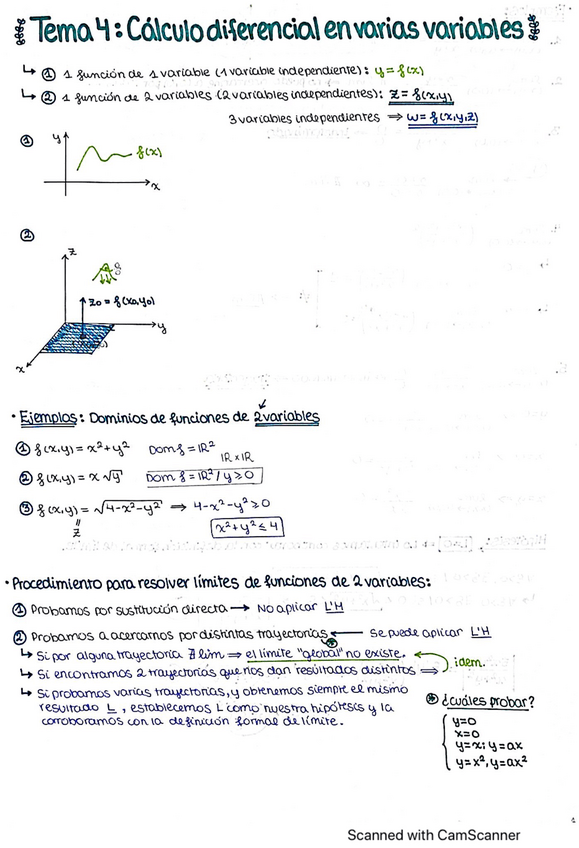 Tema 4: Cálculo diferencial en varias variables
↳ ① 1 función de 1 variable (1 variable independiente): y = f(x)
↳ ② 1 función de 2 variables (2 variables independientes): z = f(x,y)
3 variables independientes ⇒ w = f(x,y,z)
①
y
f(x)
x
②
z
f
z₀ = f(x₀,y₀)
y
x
· Ejemplos: Dominios de funciones de 2 variables
① f(x,y) = x² + y² Dom f = ℝ²
ℝ x ℝ
② f(x,y) = x √y Dom f = ℝ² / y ≥ 0
③ f(x,y) = √4-x²-y² ⇒ 4-x²-y² ≥ 0
z
x²+y² ≤ 4
· Procedimiento para resolver límites de funciones de 2 variables:
① Probamos por sustitución directa → No aplicar L'H
② Probamos a acercarnos por distintas trayectorias ← Se puede aplicar L'H
↳ Si por alguna trayectoria ∄ lim ⇒ el límite "global" no existe.
↳ Si encontramos 2 trayectorias que nos dan resultados distintos ⇒ idem.
↳ Si probamos varias trayectorias, y obtenemos siempre el mismo
resultado L, establecemos L como nuestra hipótesis y la
corroboramos con la definición formal de límite.
⊛ ¿cuáles probar?
y=0
x=0
y=x; y=ax
y=x², y=ax²
Scanned with CamScanner